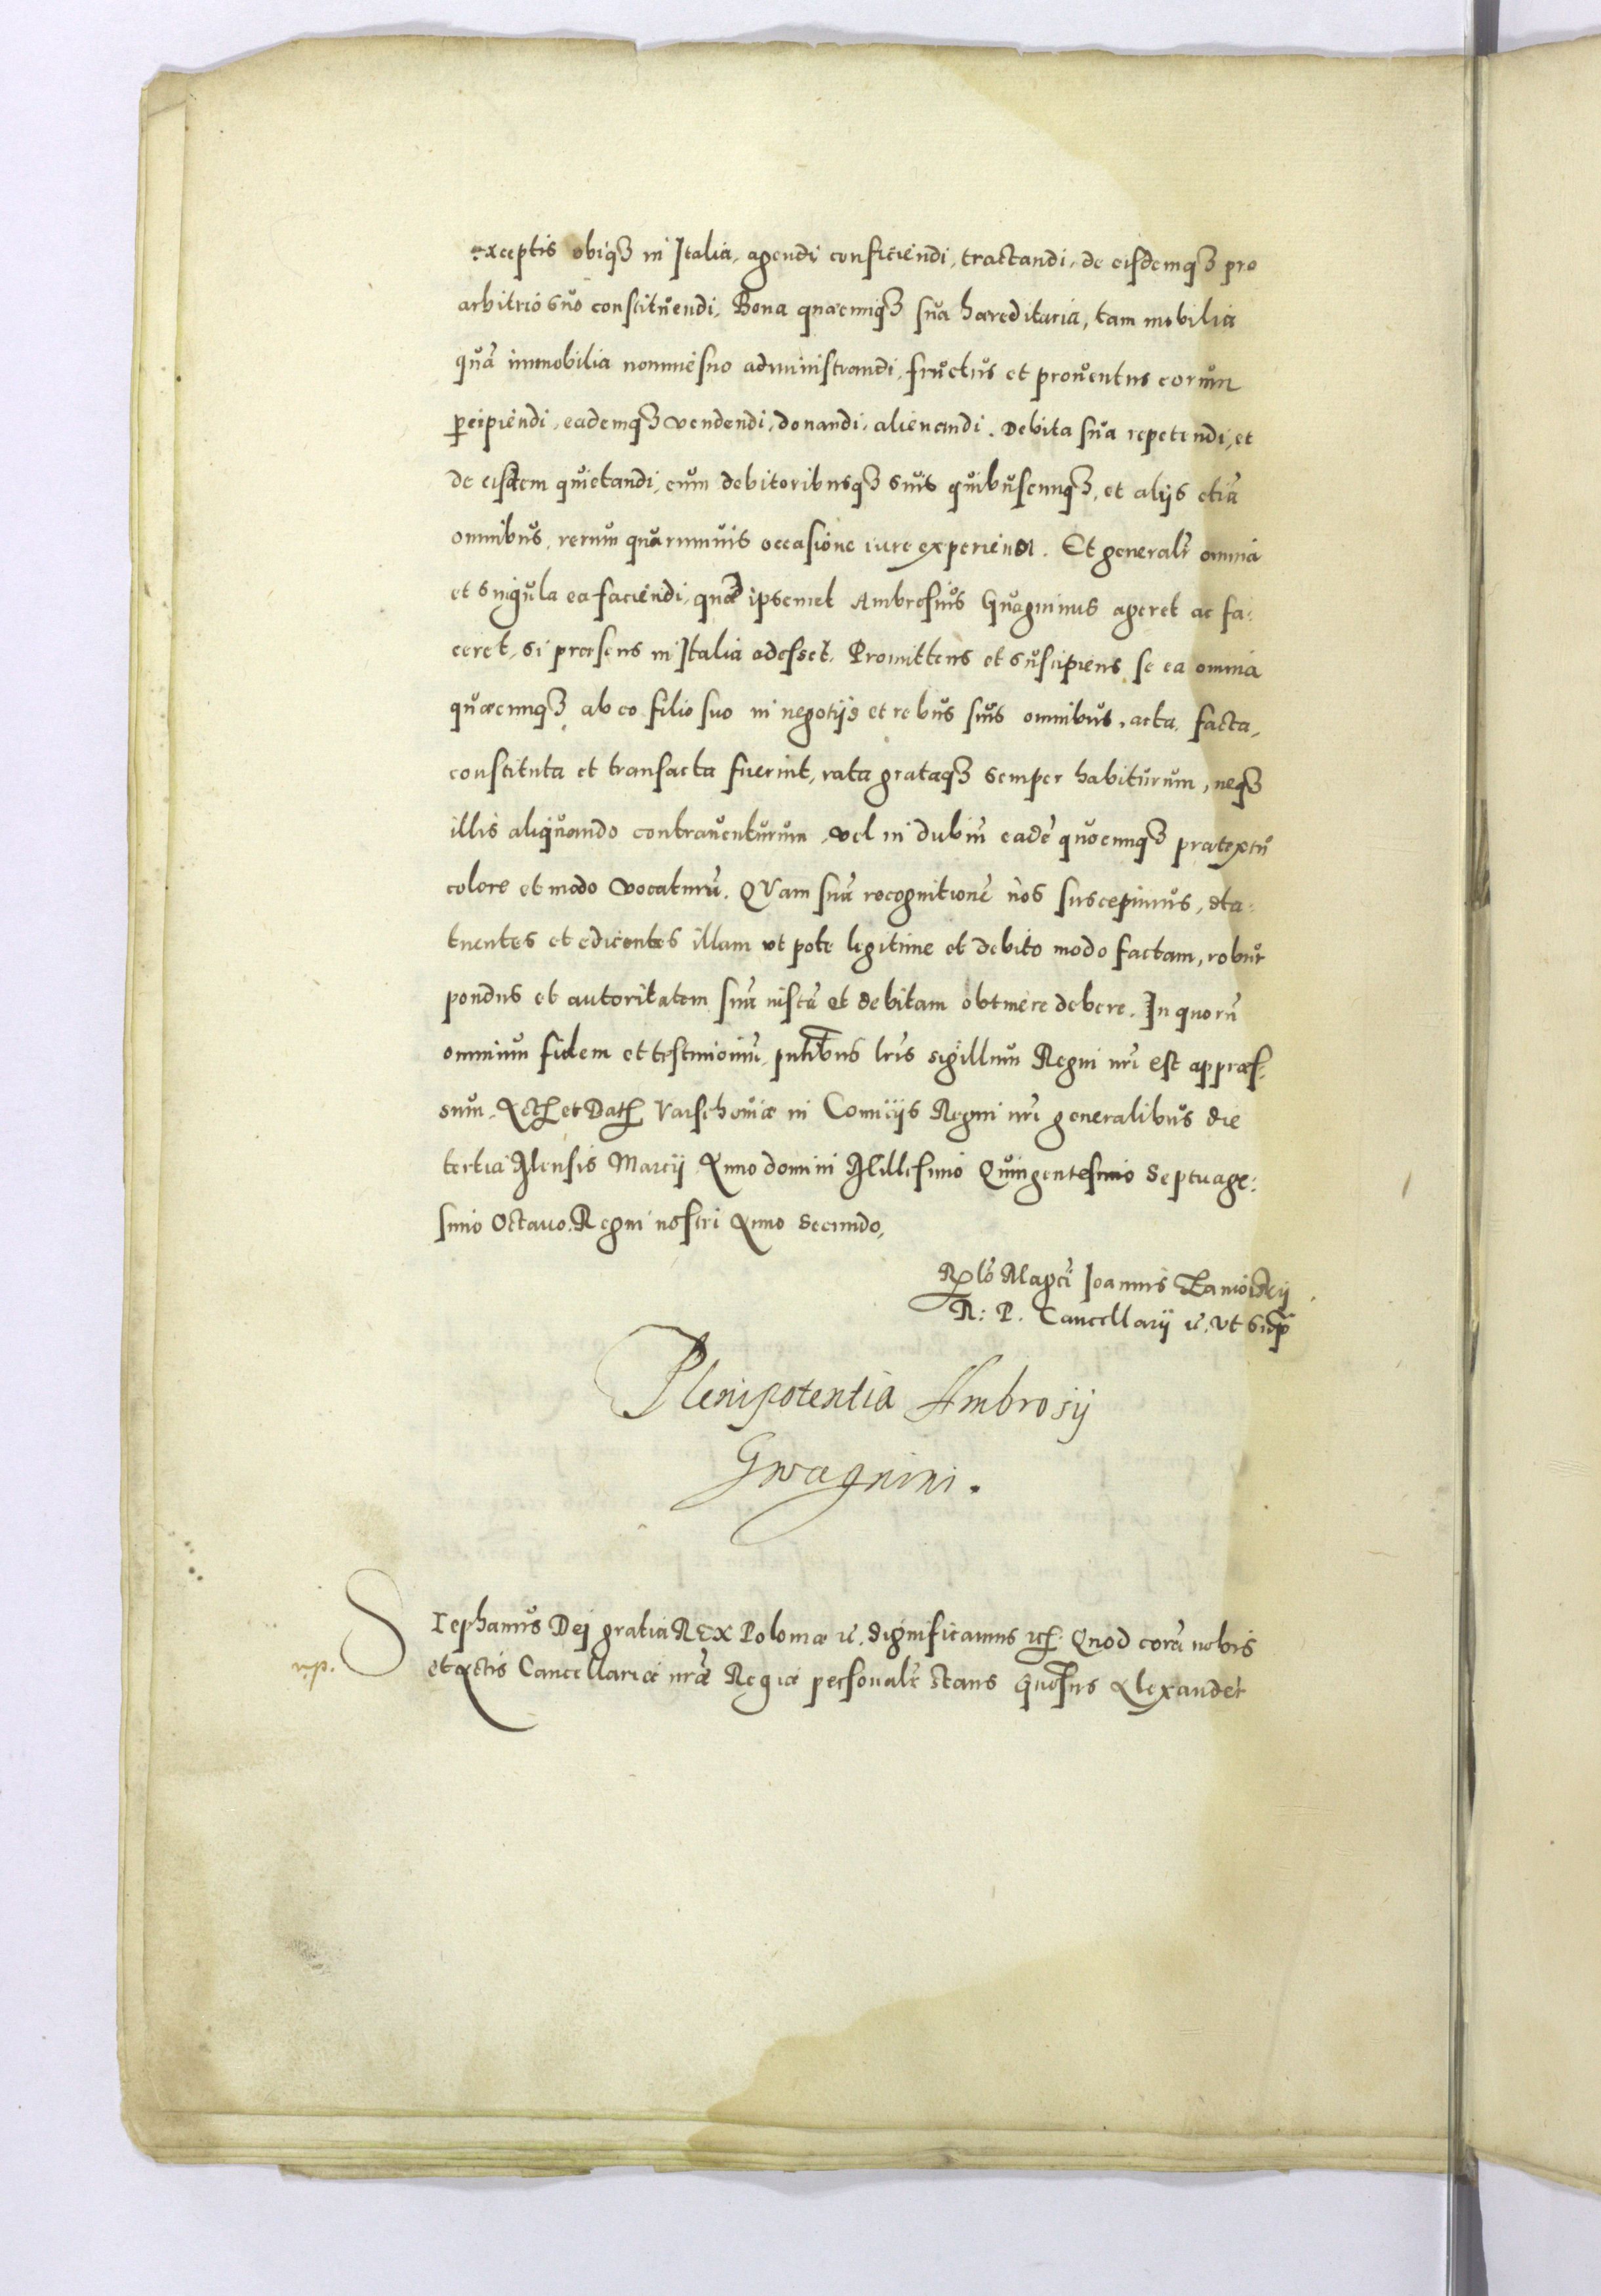 exceptis ubiqȝ in Italia, agendi conficiendi, tractandi, de eisdemqȝ pro
arbitrio suo constituendi. Bona quæcunqȝ sua hæreditaria, tam mobilia
quā immobilia nomine suo administrandi, fructus et prouentus eorum
ꝑcipiendi, eademqȝ vendendi, donandi, alienandi. Debita sua repetendi, et
de eisdem quietandi, cum debitoribusqȝ suis quibuscunqȝ, et alijs etiā
omnibus, rerum quarumuis occasione iure experiendi. Et generalr̄ omnia
et singula ea faciendi, quæ ipsemet Ambrosius Guagninus ageret ac fa:
ceret, si præsens in Italia adesset. Promittens et suscipiens se ea omnia
quæcunqȝ ab eo filio suo in negotijs et rebus suis omnibus, acta, facta,
constituta et transacta fuerint, rata grataqȝ semper habiturum, neqȝ
illis aliquando contrauenturum, vel in dubiū eadē quocunqȝ prætextu
colore et modo vocaturū. QVam suā recognitionē nos suscepimus, sta:
tuentes et edicentes illam ut pote legitime et debito modo factam, robur
pondus et autoritatem suā iustā et debitam obtinere debere. In quorū
omnium fidem et testimoniū, pn̄tibus lr̄is sigillum Regni nr̄i est appræs:
sum. Act̄ et Dat̄ Varschouiæ in Comicijs Regni nr̄i generalibus die
tertia Mensis Marcij Anno domini Millesimo Quingentesimo Septuage:
simo Octauo. Regni nostri Anno Secundo,
Rel̄o Magci Joannis Zamoiskij
R: P. Cancellarij &c. ut Supr̄
Plenipotentia Ambrosij
Gwagnini.
STephanus Dej gratia REX Poloniæ &c. Significamus &c. Quod corā nobis
et Actis Cancellariæ nr̄æ Regiæ personalr̄ stans Gn̄osus Alexander